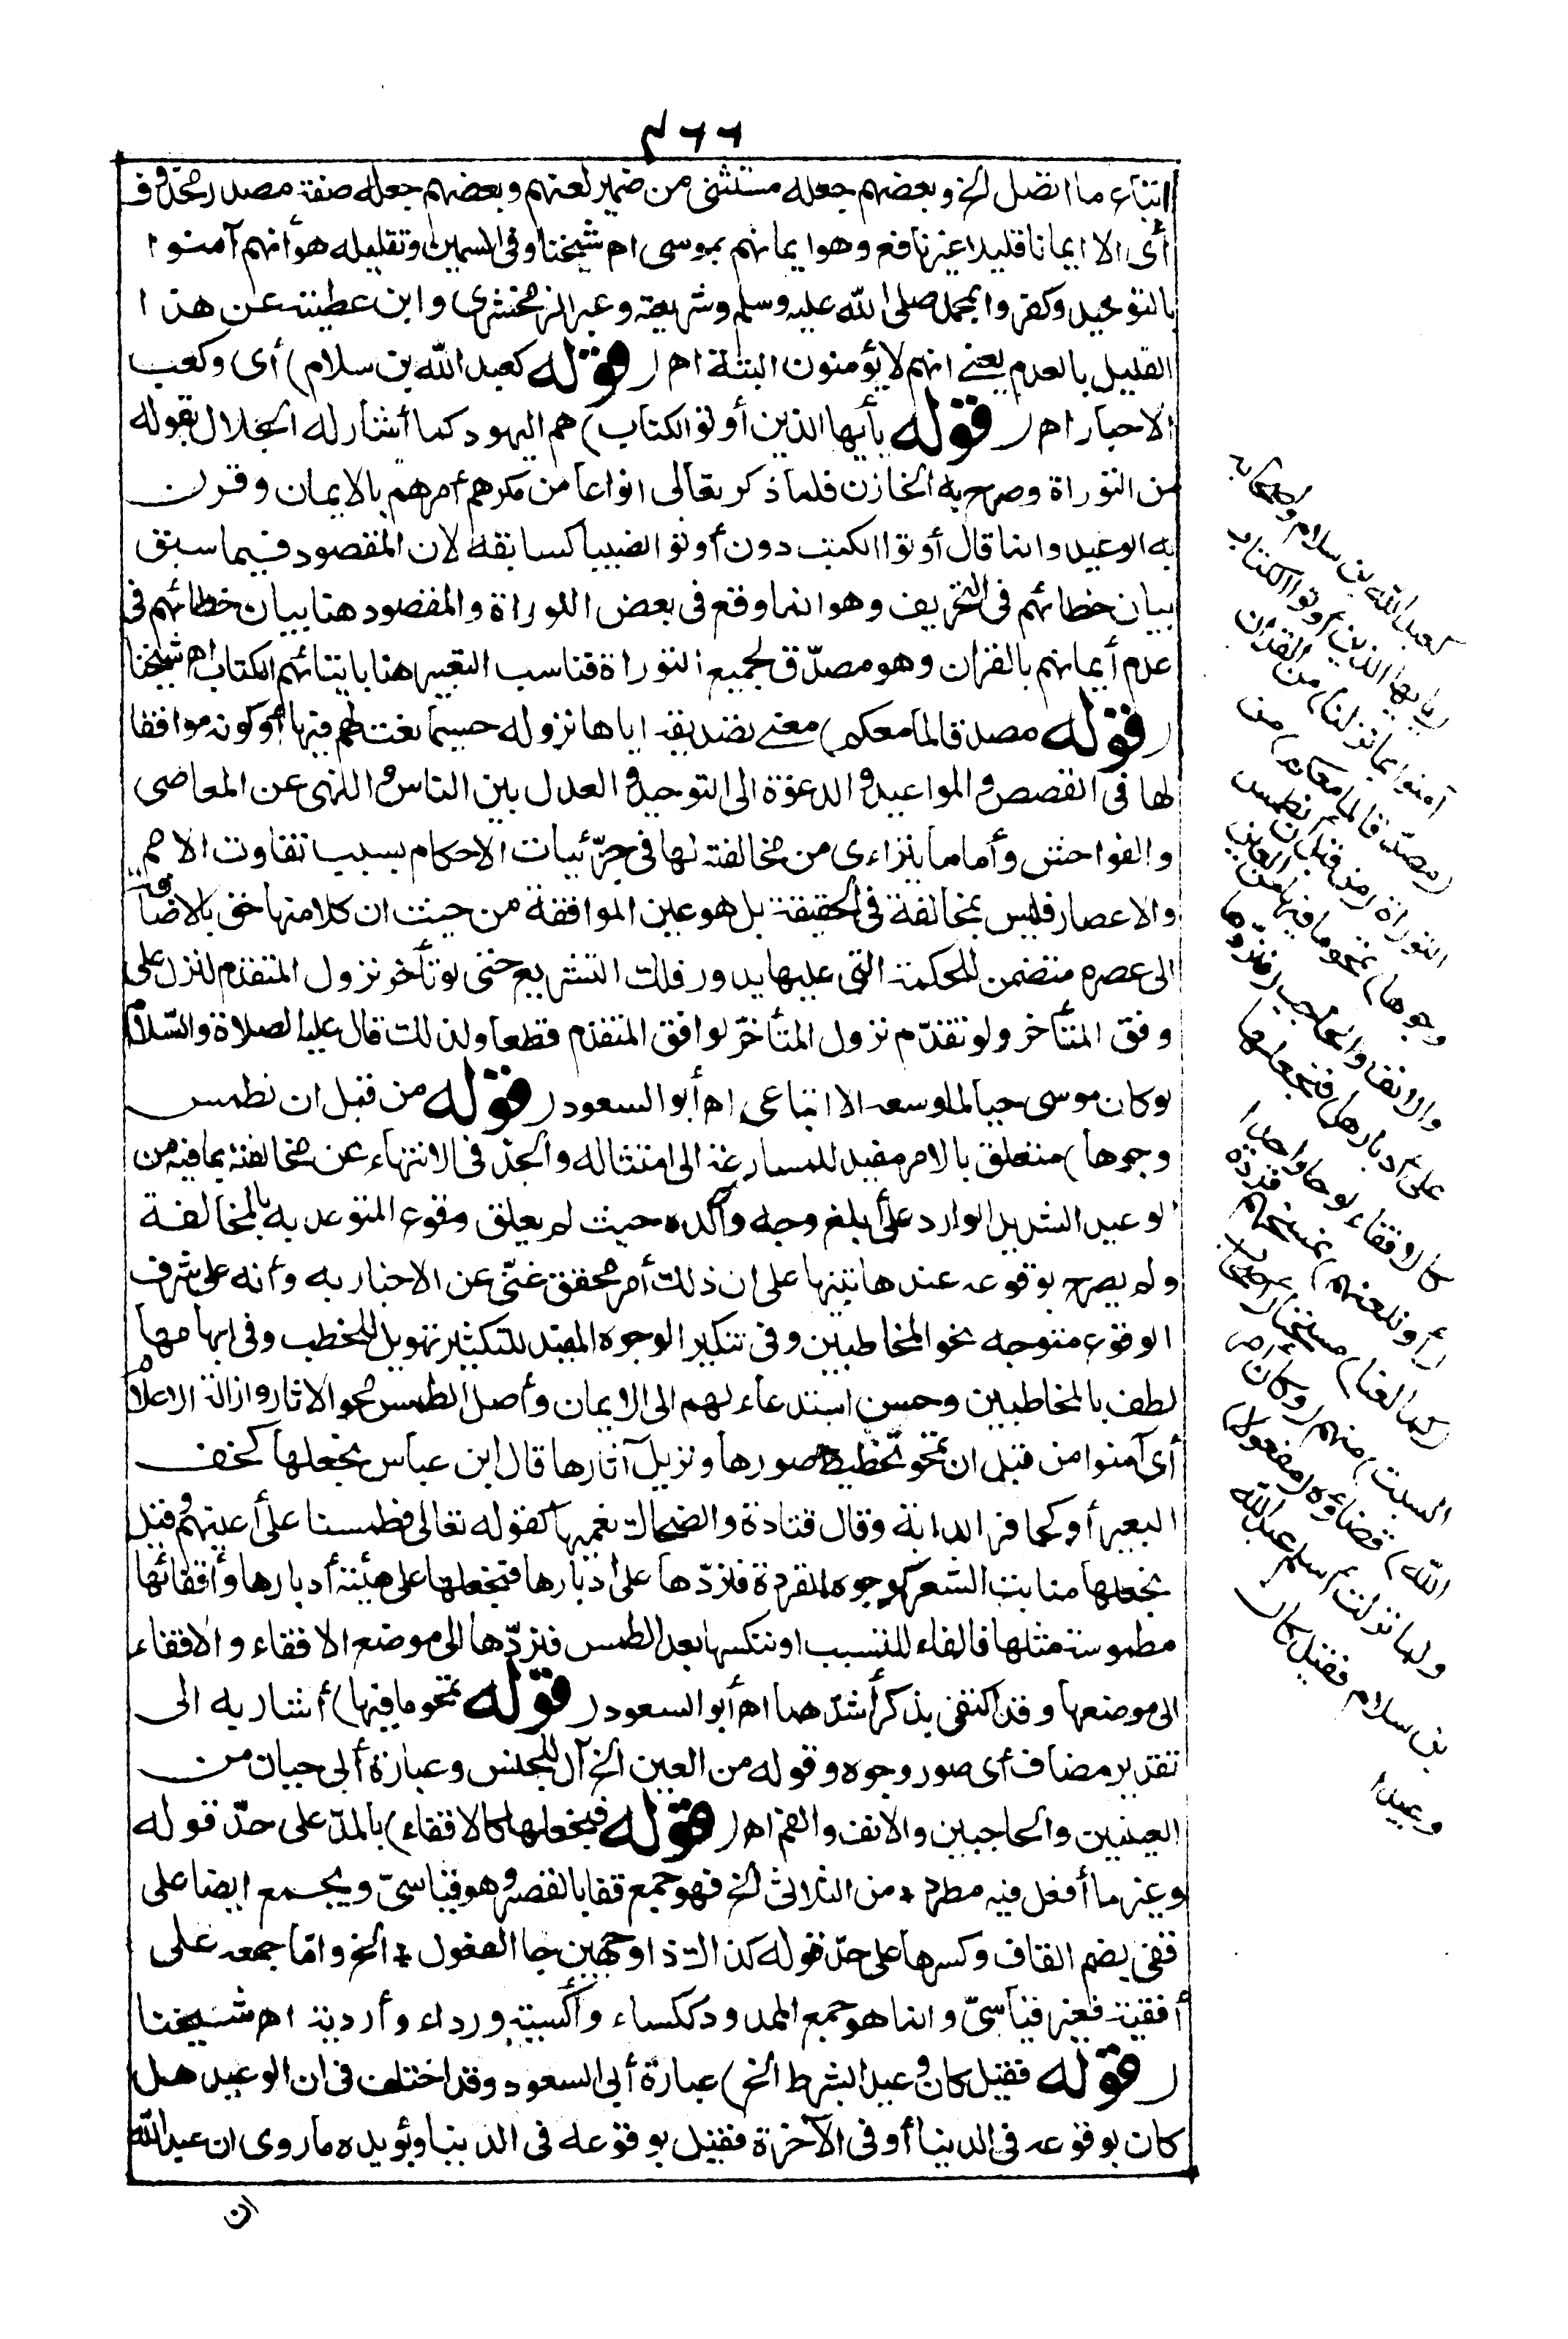 ٤٦٦
اتباع ما اتصل الخ وبعضهم جعله مستثنى من ضمير لعنهم وبعضهم جعله صفة مصدر محذوف
أى الا ايمانا قليلا غير نافع وهو ايمانهم بموسى اه شيخنا وفى السمين وتقليله هو أنهم آمنوا
بالتوحيد وكفروا بمحمد صلى الله عليه وسلم وشريعته وعبر الزمخشرى وابن عطية عن هذا
القليل بالعدم يعنى انهم لا يؤمنون البتة اه (قوله كعبد الله بن سلام) أى وكعب
الاحبار اه (قوله يأيها الذين أوتوا الكتاب) هم اليهود كما أشار له الجلال بقوله
من التوراة وصرح به الخازن فلما ذكر تعالى انواعا من مكرهم أمرهم بالايمان وقرن
به الوعيد وانما قال أوتوا الكتب دون أوتوا نصيبا كسابقه لان المقصود فيما سبق
بيان خطائهم فى التحريف وهو انما وقع فى بعض التوراة والمقصود هنا بيان خطائهم فى
عدم أيمانهم بالقرآن وهو مصدّق لجميع التوراة فناسب التعبير هنا بايتائهم الكتاب اه شيخنا
(قوله مصدقا لما معكم) معنى تصديقه اياها نزوله حسبما نعت لهم فيها أو كونه موافقا
لها فى القصص والمواعيد والدعوة الى التوحيد والعدل بين الناس والنهى عن المعاصى
والفواحش وأما ما يتراءى من مخالفته لها فى جزئيات الاحكام بسبب تفاوت الامم
والاعصار فليس بمخالفة فى الحقيقة بل هو عين الموافقة من حيث ان كلا منها حق بالاضافة
الى عصره متضمن للحكمة التى عليها يدور فلك التشريع حتى لو تأخر نزول المتقدم لنزل على
وفق المتأخر ولو تقدّم نزول المتأخر لوافق المتقدم قطعا ولذلك قال عليه الصلاة والسّلام
لو كان موسى حيا لما وسعه الا اتباعى اه أبو السعود (قوله من قبل ان نطمس
وجوها) متعلق بالامر مفيد للمسارعة الى امتثاله والجد فى الانتهاء عن مخالفته بما فيه من
الوعيد الشديد الوارد على أبلغ وجه وآكده حيث لم يعلق وقوع المتوعد به بالمخالفة
ولم يصرح بوقوعه عندها تنبيها على ان ذلك أمر محقق غنىّ عن الاخبار به وأنه على شرف
الوقوع متوجه نحو المخاطبين وفى تنكير الوجوه المفيد للتكثير تهويل للخطب وفى ابهامها
لطف بالمخاطبين وحسن استدعاء لهم الى الايمان وأصل الطمس محو الاثار وازالة الاعلام
أى آمنوا من قبل ان نمحو تخطيط صورها ونزيل آثارها قال ابن عباس نجعلها كخف
البعير أو كحافر الدابة وقال قتادة والضحاك نعميها كقوله تعالى فطمسنا على أعينهم وقيل
نجعلها منابت الشعر كوجوه القردة فنردّها على ادبارها فنجعلها على هيئة أدبارها وأقفائها
مطموسة مثلها فالفاء للتسبب او ننكسها بعد الطمس فنردّها الى موضع الاقفاء والاقفاء
الى موضعها وقد اكتفى بذكر أشدّهما اه أبو السعود (قوله نمحو ما فيها) أشار به الى
تقدير مضاف أى صور وجوه وقوله من العين الخ أل للجنس وعبارة أبى حيان من
العينين والحاجبين والانف والفم اه (قوله فنجعلها كالاقفاء) بالمدّ على حدّ قوله
وغير ما أفعل فيه مطرد * من الثلاثى الخ فهو جمع قفا بالقصر وهو قياسىّ ويجمع ايضا على
قفى بضم القاف وكسرها على حدّ قوله كذاك ذا وجهين جا الفعول * الخ وامّا جمعه على
أقفية فغير قياسىّ وانما هو جمع الممدود ككساء وأكسية ورداء وأردية اه شيخنا
(قوله فقيل كان وعيد البشرط الخ) عبارة أبى السعود وقد اختلف فى ان الوعيد هل
كان بوقوعه فى الدنيا أو فى الآخرة فقيل بوقوعه فى الدنيا ويؤيده ما روى ان عبد الله
ابن
كعبد الله بن سلام وأصحابه
(يأيها الذين أوتوا الكتاب
آمنوا بما نزلنا) من القرآن
(مصدّقا لما معكم) من
التوراة (من قبل أن نطمس
وجوها) نمحو ما فيها من العين
والانف والحاجب (فنردّها
على أدبارها) فنجعلها
كالاقفاء لوحا واحدا
(أو نلعنهم) نمسخهم قردة
(كما لعنا) مسخنا (أصحاب
السبت) منهم (وكان أمر
الله) قضاؤه (مفعولا)
ولما نزلت أسلم عبد الله
بن سلام فقيل كان
وعيدا